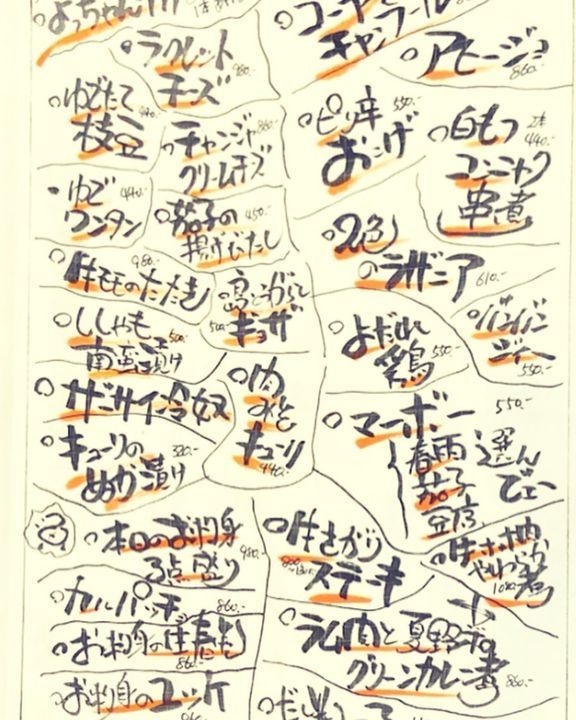 よっちゃん
ゴーヤー
チャンプルー
ラクレット
チーズ
アヒージョ
860.-
ゆでたて
枝豆
440.-
チャンジャ
クリームチーズ
ピリ辛
おこげ
550.-
白もつ
コンニャク
串煮
2本
440.-
ゆで
ワンタン
440.-
茄子の
揚げびたし
450.-
のラザニア
610.-
牛モモのたたき
960.-
青とうがらし
ギョザ
ししゃも
南蛮漬け
よだれ
鶏
550.-
バンバン
ジー
550.-
ザーサイ冷奴
肉
みそ
キューリ
440.-
キューリの
ぬか漬け
320.-
マーボー
550.-
春雨
茄子
豆腐
選ん
でェー
魚
本日のお刺身
3点盛り
980.-
牛さがり
ステーキ
牛ホホ肉
やわらか
煮
カルパッチョ
860.-
お刺身の生春巻
860.-
ラム肉と夏野菜
グリーンカレー煮
860.-
お刺身のユッケ